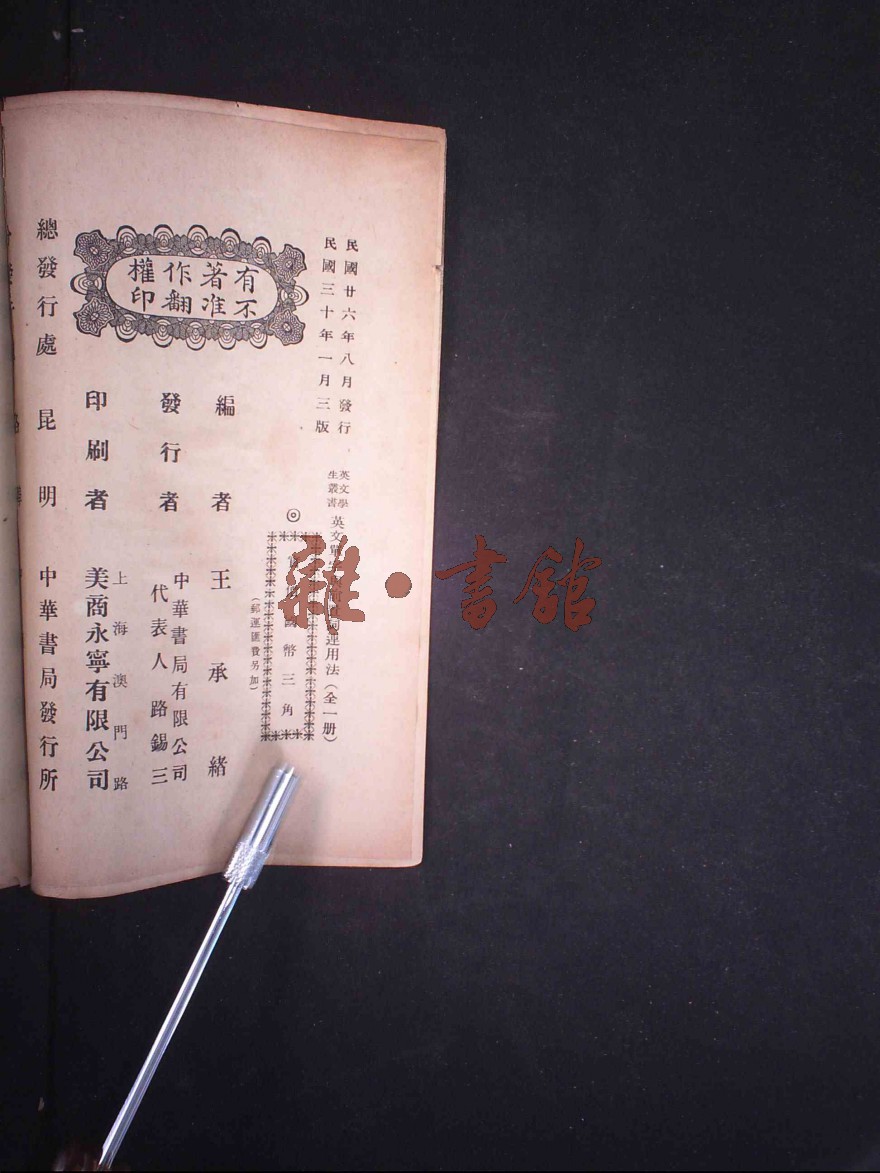 民國廿六年八月發行
民國三十年一月三版
英文學
生叢書
英文單
運用法(全一册)
◎
國幣三角
(郵運匯費另加)
有著作權
不准翻印
編者 王承緒
發行者 中華書局有限公司
代表人路錫三
上海澳門路
印刷者 美商永寧有限公司
總發行處 昆明 中華書局發行所
雜·書館